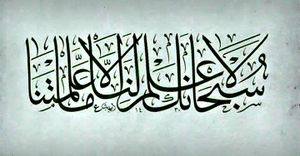 سُبْحَانَكَ لَا عِلْمَ لَنَا إِلَّا مَا عَلَّمْتَنَا